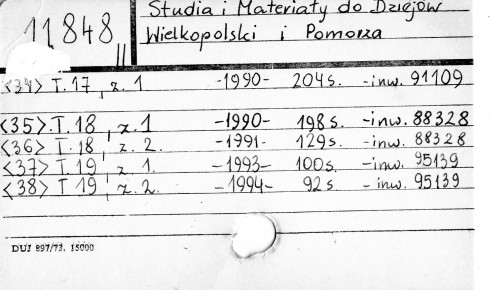 11848 II
Studia i Materiały do Dziejów
Wielkopolski i Pomorza
<34> T.17, z.1 -1990- 204s. -inw. 91109
<35>.T.18, z.1 -1990- 198s. -inw. 88328
<36> T.18, z.2. -1991- 129s. -inw. 88328
<37> T.19, z.1. -1993- 100s. -inw. 95139
<38> T.19, z.2. -1994- 92s. -inw. 95139
DUJ 897/73. 15000